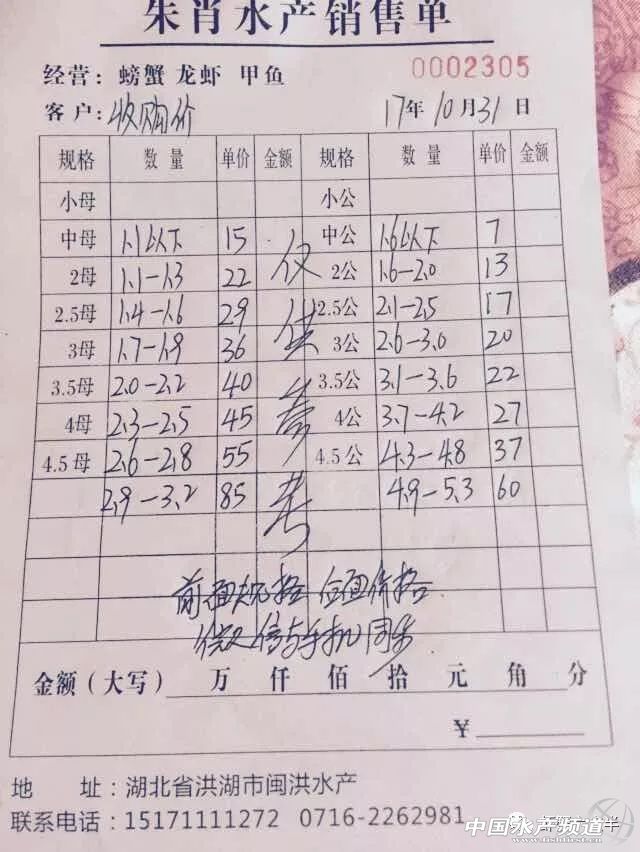 朱肖水产销售单
经营: 螃蟹 龙虾 甲鱼 0002305
客户: 收购价 17年10月31日
规格 数量 单价 金额 规格 数量 单价 金额
小母 小公
中母 1.1以下 15 中公 1.6以下 7
2母 1.1-1.3 22 仅 2公 1.6-2.0 13
2.5母 1.4-1.6 29 供 2.5公 2.1-2.5 17
3母 1.7-1.9 36 3公 2.6-3.0 20
3.5母 2.0-2.2 40 参 3.5公 3.1-3.6 22
4母 2.3-2.5 45 4公 3.7-4.2 27
4.5母 2.6-2.8 55 4.5公 4.3-4.8 37
2.9-3.2 85 考 4.9-5.3 60
前面规格 后面价格
微信与手机同步
金额(大写) 万 仟 佰 拾 元 角 分
¥
地 址: 湖北省洪湖市闽洪水产
联系电话: 15171111272 0716-2262981
中国水产频道
www.fishfirst.cn